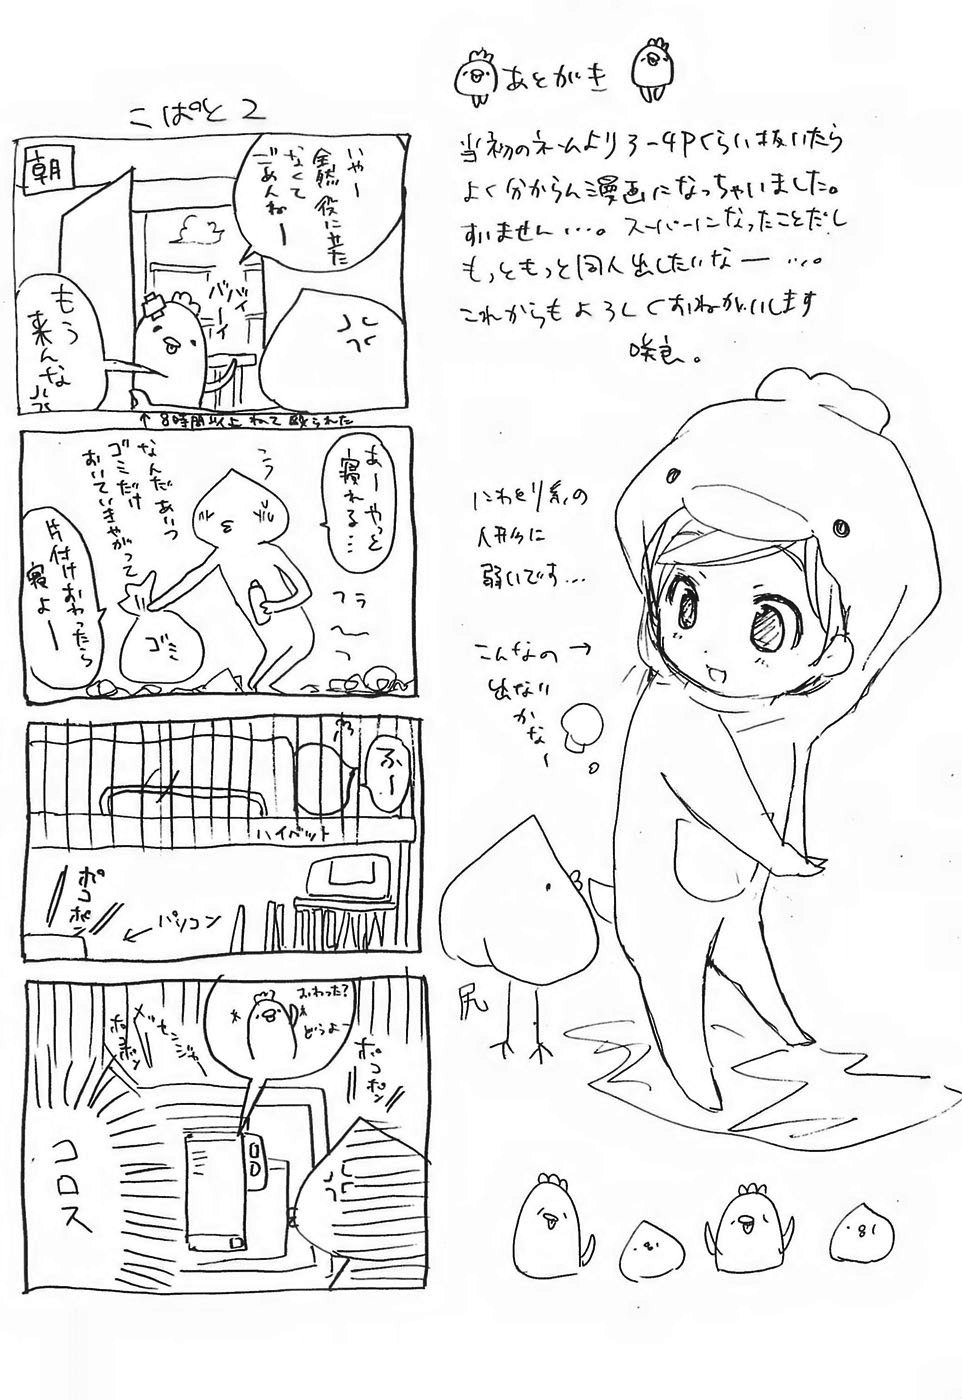 あとがき
当初のネームより3-4Pくらい抜いたら
よく分からん漫画になっちゃいました。
すいません…。スーパーになったことだし
もっともっと同人出したいなー…。
これからもよろしくおねがいします
咲良。
にわとり系の
人形に
弱いです…
こんなの→
出ない
かなー
尻
こぱと2
朝
いやー
全然役に立た
なくて
ごめんねー
バイ
バーイ
もう
来んな
↑8時間以上ねてて殴られた
あーやっと
寝れる…
なんだあいつ
ゴミだけ
おいていきやがって
ゴミ
フラ
〜
っ
片付けおわったら
寝よー
ふー
ハイベット
ポコ
ポン
←パソコン
おわった?
どうよー
メッセンジャ
ポコ
ポン
ポコ
ポン
コロス